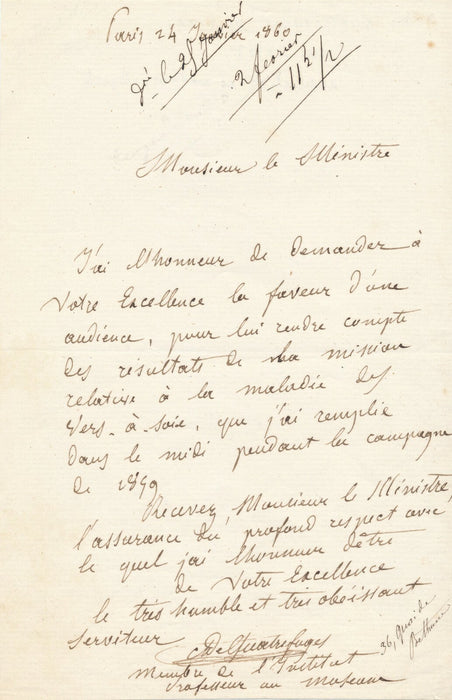 Paris 24 Janvier 1860
le 25 Janvier
2 fevrier
11 h 1/2
Monsieur le Ministre
J'ai l'honneur de demander à
Votre Excellence la faveur d'une
audience, pour lui rendre compte
des résultats de la mission
relative à la maladie des
Vers-à-soie, que j'ai remplie
dans le midi pendant la campagne
de 1859
Recevez, Monsieur le Ministre,
l'assurance du profond respect avec
le quel j'ai l'honneur d'être
de Votre Excellence
le très humble et très obéissant
serviteur
A De Quatrefages
Membre de l'Institut
Professeur au Museum
36, Quai de
Bethune